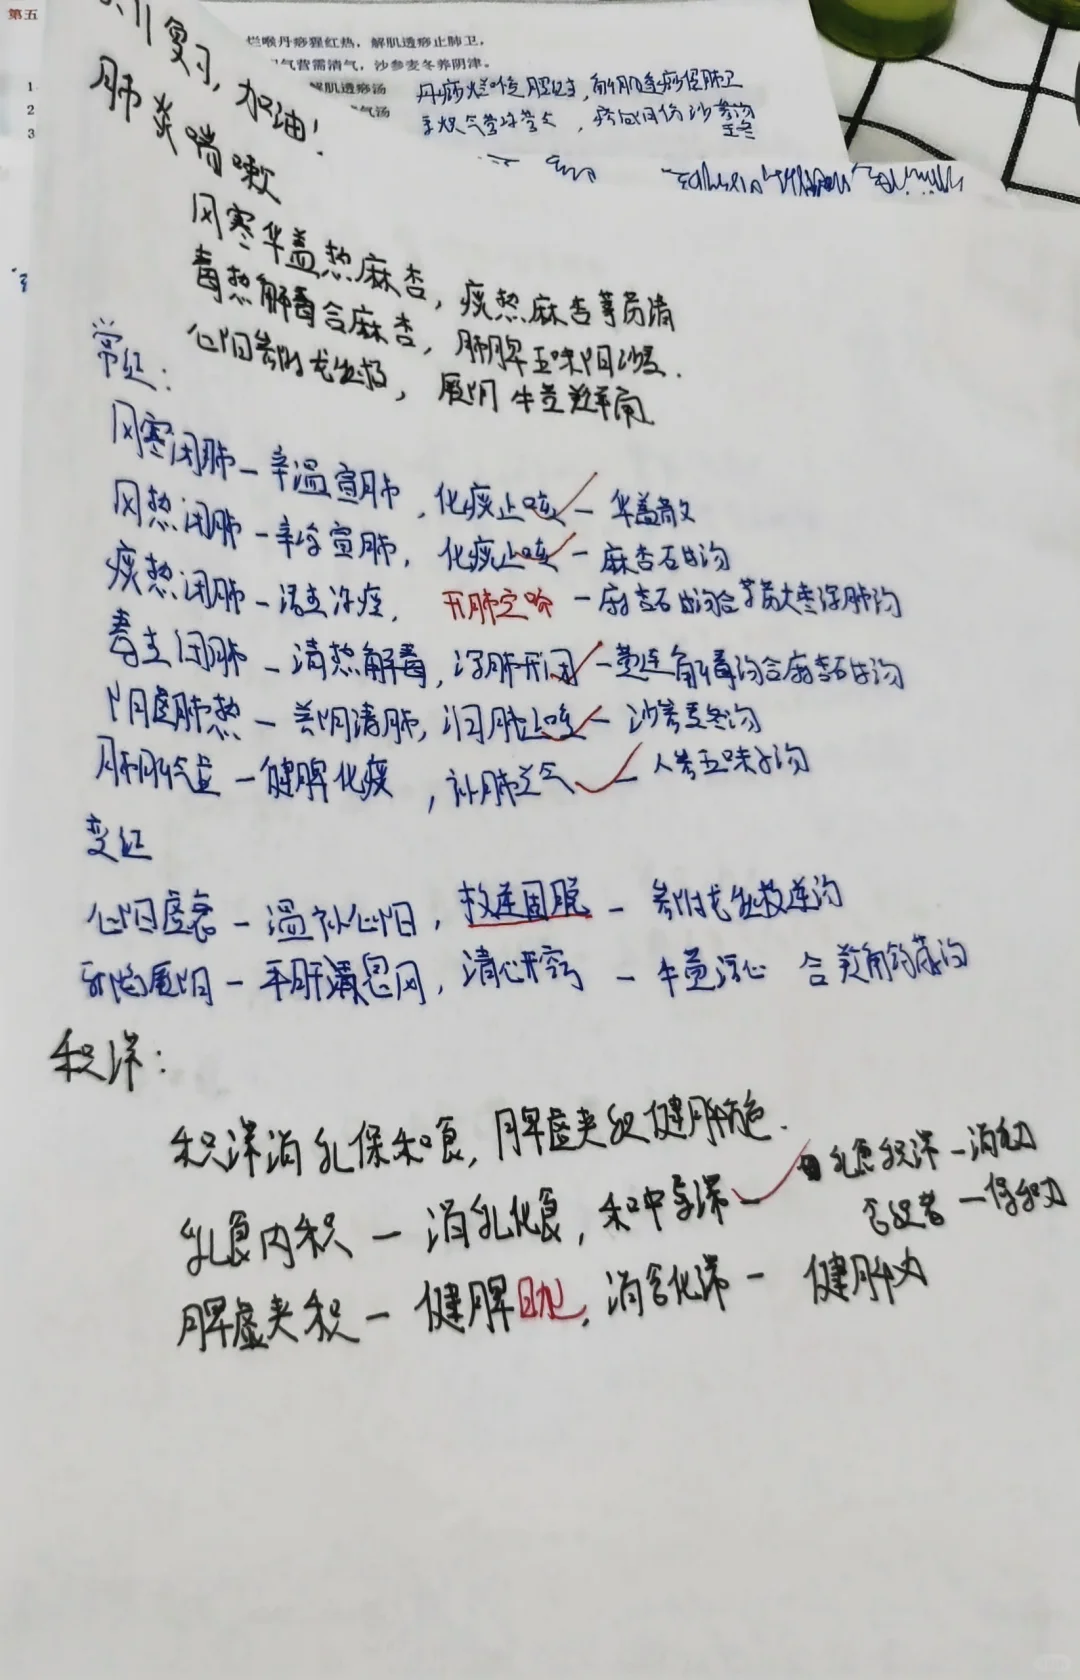 第五
1
2
3
烂喉丹痧猩红热，解肌透痧止肺卫，
气营需清气，沙参麦冬养阴津。
解肌透痧汤
气汤
复习，加油！
肺炎喘嗽
风寒华盖热麻杏，痰热麻杏葶苈清
毒热解毒合麻杏，肺脾五味阴沙麦.
心阳参附龙牡救，厥阴牛黄羚角
常证：
风寒闭肺－辛温宣肺，化痰止咳－华盖散
风热闭肺－辛凉宣肺，化痰止咳－麻杏石甘汤
痰热闭肺－清热涤痰，开肺定喘－麻杏石甘汤合葶苈大枣泻肺汤
毒热闭肺－清热解毒，泻肺开闭－黄连解毒汤合麻杏石甘汤
阴虚肺热－养阴清肺，润肺止咳－沙参麦冬汤
肺脾气虚－健脾化痰，补肺益气－人参五味子汤
变证
心阳虚衰－温补心阳，救逆固脱－参附龙牡救逆汤
邪陷厥阴－平肝熄风，清心开窍－牛黄清心 合羚角钩藤汤
积滞：
积滞消乳保和食，脾虚夹积健脾施.
乳食内积－消乳化食，和中导滞－乳食积滞－消乳丸
食积者－保和丸
脾虚夹积－健脾助运，消食化滞－健脾丸